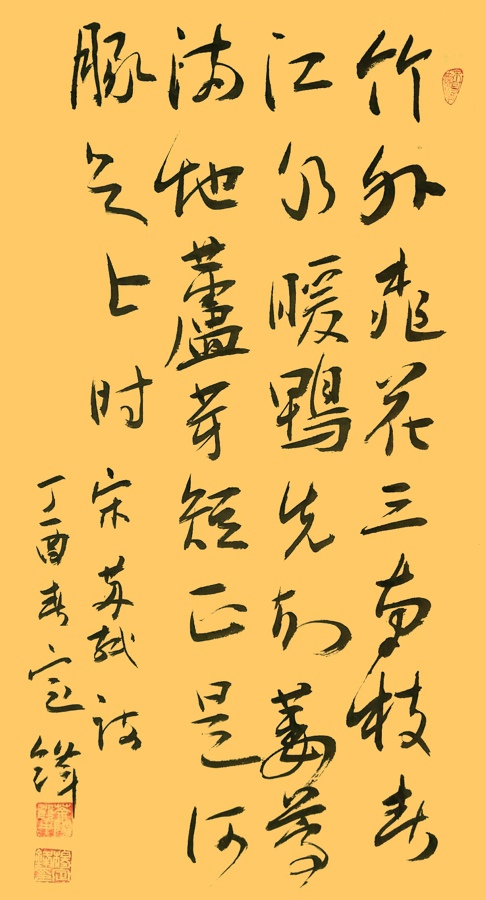 竹外桃花三两枝春
江水暖鴨先知蒌蒿
满地蘆芽短正是河
豚欲上时 宋苏轼诗
丁酉春